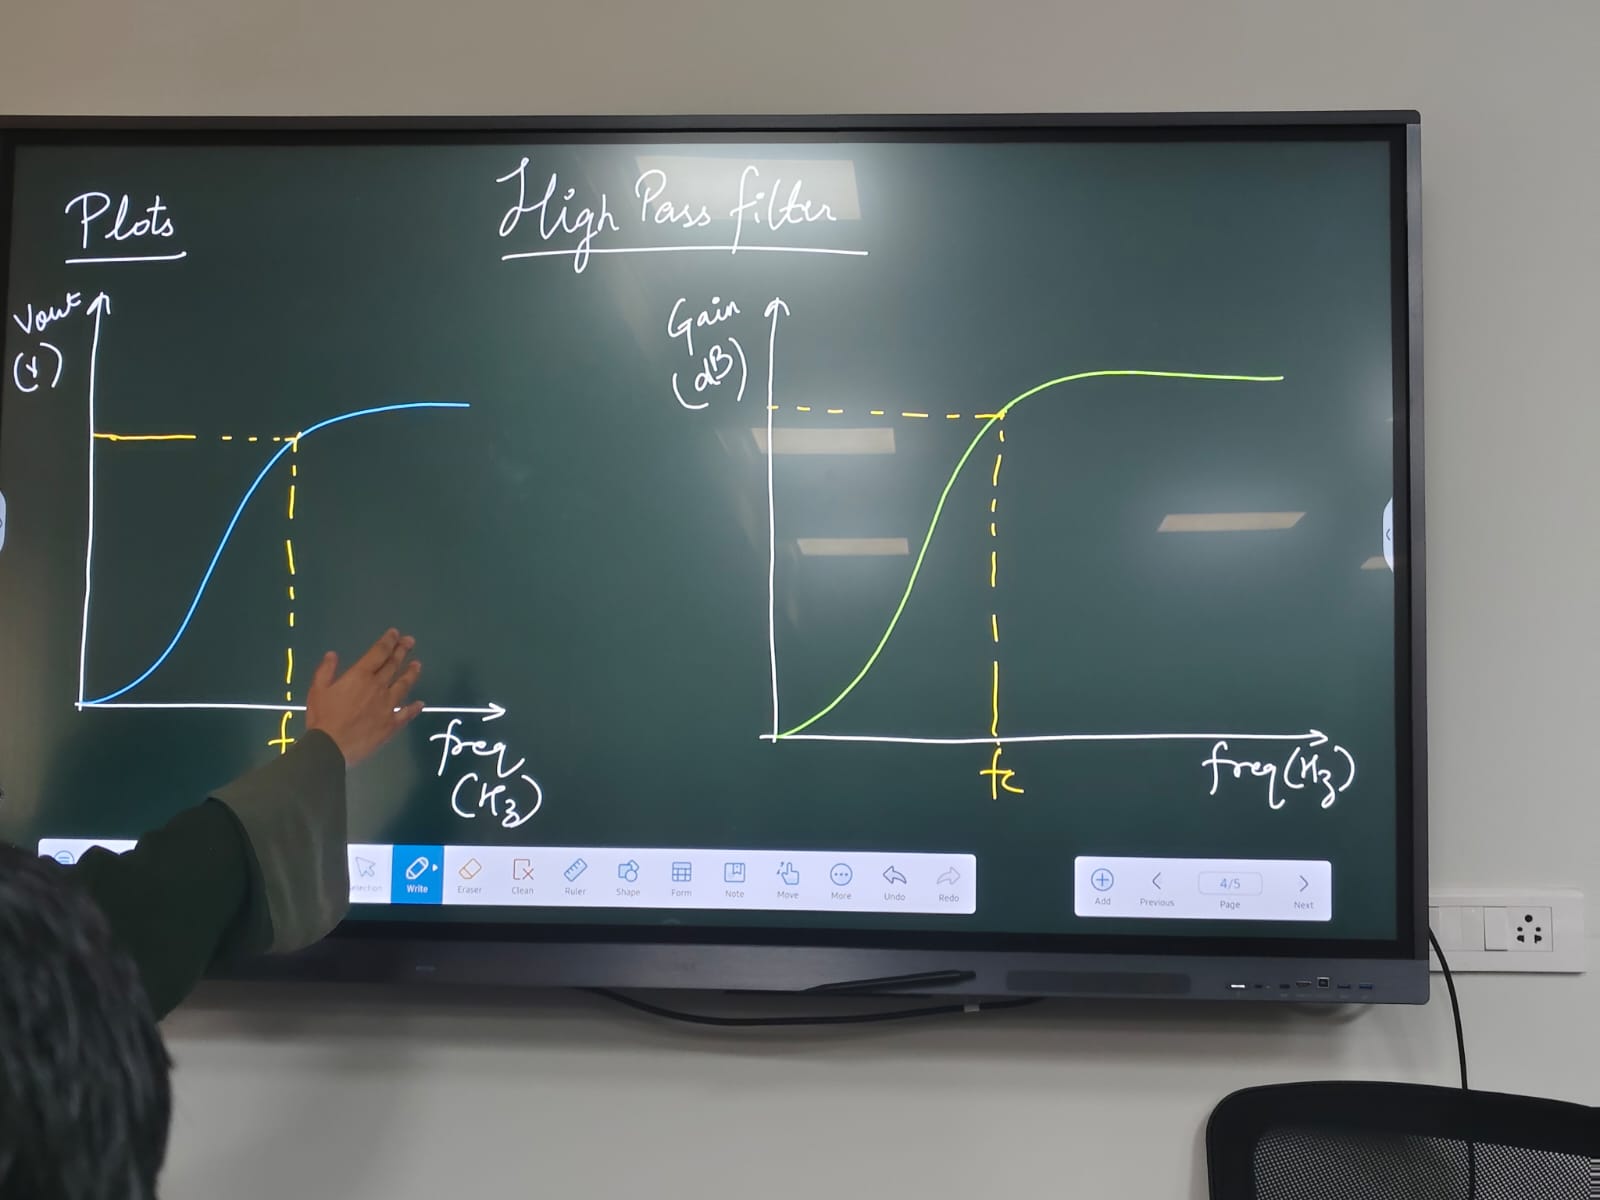 Plots
High Pass filter
Vout
(v)
freq
(Hz)
Gain
(dB)
fc
freq (Hz)
Write
Eraser
Clean
Ruler
Shape
Form
Note
Move
More
Undo
Redo
Add
Previous
4/5
Page
Next